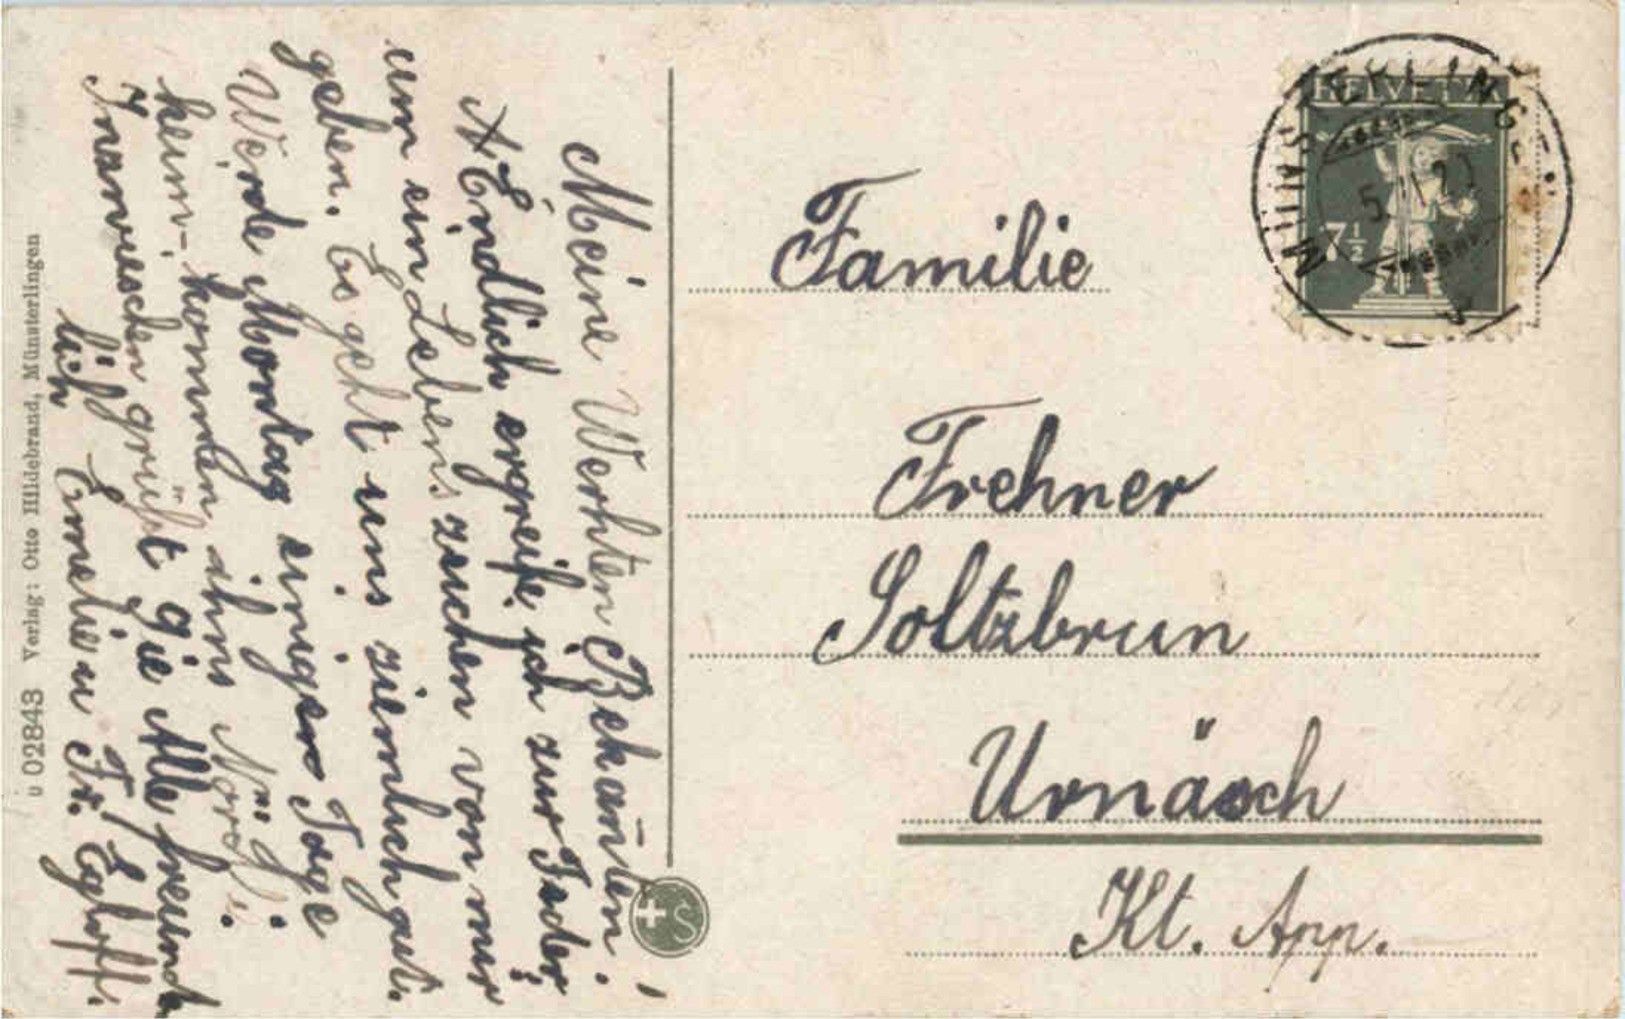 Meine Werhten Bekanten!
Endlich ergreife ich zur Feder
um ein Lebenszeichen von mir
geben. Es geht uns ziemlich gut.
Werde Montag einigen Tage
heim-kommen ihns Nördli.
Inzwieschen grüßt Sie Alle freund
lich
Emelie u Fr. Egloff.
ü 02843 Verlag: Otto Hildebrand, Münsterlingen
S
MÜNSTERLINGEN
HELVETIA
7½
Familie
Frehner
Soltzbrun
Urnäsch
Kt. App.